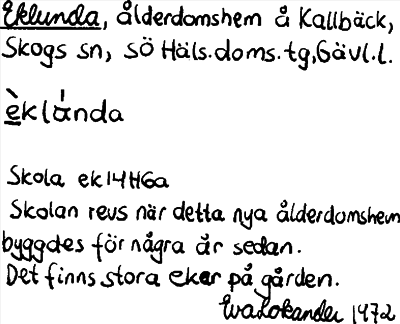 Eklunda, ålderdomshem å Kallbäck,
Skogs sn, SÖ Häls.doms.tg, Gävl.l.
èklánda
Skola ek14H6a
Skolan revs när detta nya ålderdomshem
byggdes för några år sedan.
Det finns stora ekar på gården.
Eva Lokander 1972